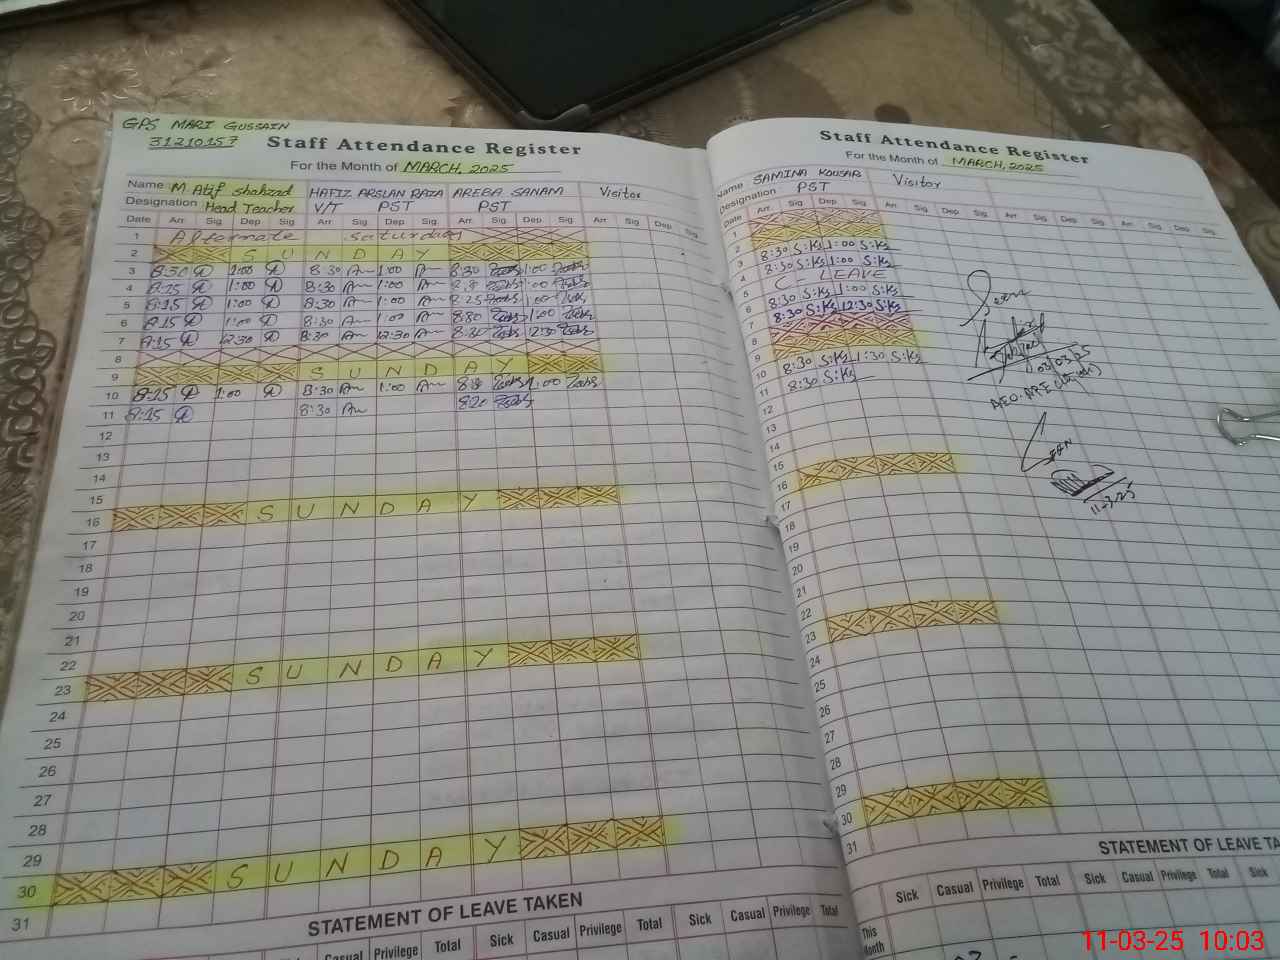 GPS MARI GUSSAIN
31210157
Staff Attendance Register
For the Month of MARCH, 2025
Name M Atif Shahzad HAFIZ ARSLAN RAZA AREBA SANAM Visitor
Designation Head Teacher V/T PST PST
Date Arr Sig Dep Sig Arr Sig Dep Sig Arr Sig Dep Sig Arr Sig Dep Sig
1 Alternate saturday
2 SUNDAY
3 8:30 1:00 8:30 1:00 8:30 1:00
4 8:25 1:00 8:30 1:00 1:00
5 8:15 1:00 8:30 1:00 8:25 1:00
6 8:15 1:00 8:30 1:00 8:30 1:00
7 8:15 12:30 8:30 12:30 8:30 12:30
8
9 SUNDAY
10 8:25 1:00 8:30 1:00 1:00
11 8:15 8:30 8:20
12
13
14
15
16 SUNDAY
17
18
19
20
21
22
23 SUNDAY
24
25
26
27
28
29
30 SUNDAY
31
STATEMENT OF LEAVE TAKEN
Casual Privilege Total Sick Casual Privilege Total Sick Casual Privilege Total
Staff Attendance Register
For the Month of MARCH, 2025
Name SAMINA KOUSAR Visitor
Designation PST
Date Arr Sig Dep Sig Arr Sig Dep Sig Arr Sig Dep Sig Arr Sig Dep Sig
1
2
3 8:30 S:Ks 1:00 S:Ks
4 8:30 S:Ks 1:00 S:Ks
5 C LEAVE
6 8:30 S:Ks 1:00 S:Ks
7 8:30 S:Ks 12:30 S:Ks
8
9
10 8:30 S:Ks 1:30 S:Ks
11 8:30 S:Ks
12
13
14
15
16
17
18
19
20
21
22
23
24
25
26
27
28
29
30
31
Seen
03/03/25
Seen
11-3-25
STATEMENT OF LEAVE TA
This Month Sick Casual Privilege Total Sick Casual Privilege Total Sick
11-03-25 10:03